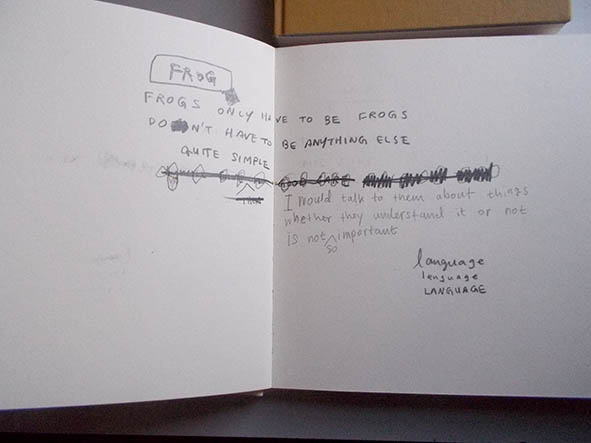 FROG
FROGS ONLY HAVE TO BE FROGS
DON'T HAVE TO BE ANYTHING ELSE
QUITE SIMPLE
I would talk to them about things
whether they understand it or not
is not so important
language
language
LANGUAGE